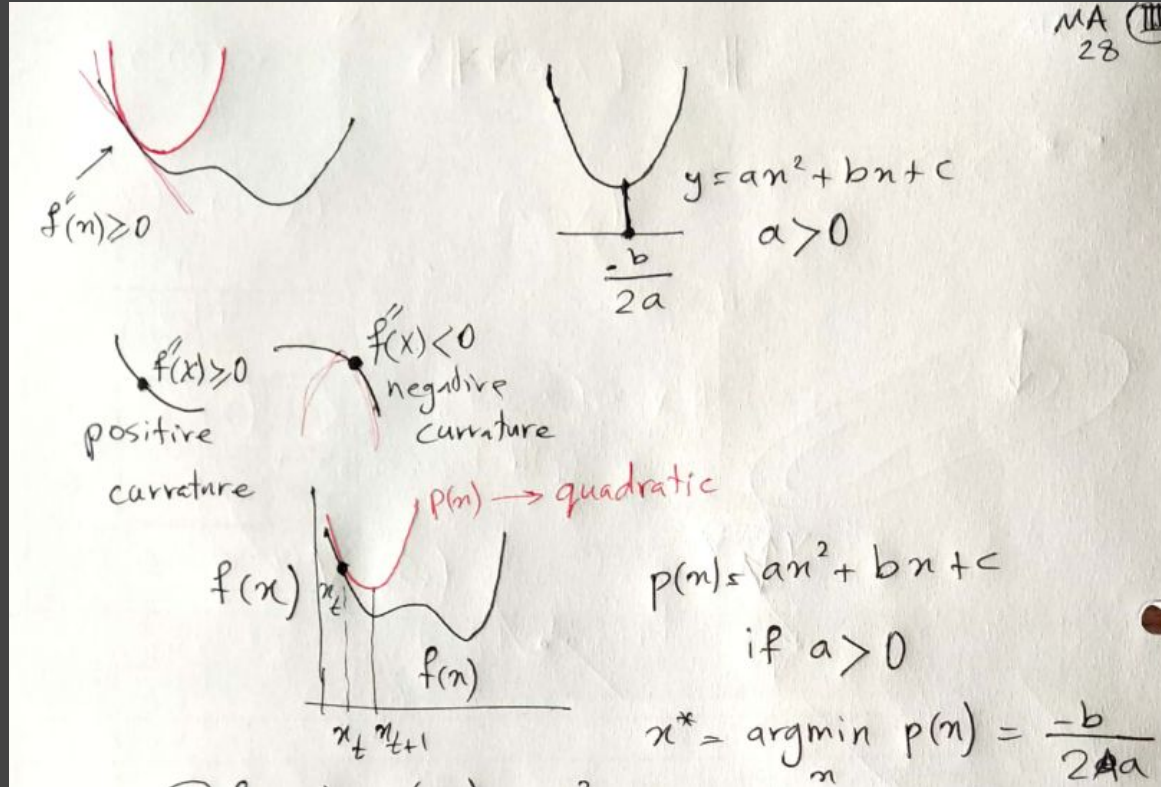 MA III
28
f″(x)≥0
y = ax² + bx + c
a > 0
-b/2a
f″(x)≥0
positive
carvature
f″(x)<0
negative
curvature
p(x) → quadratic
f(x)
x_t
f(x)
x_t x_t+1
p(x) = ax² + bx + c
if a > 0
x* = argmin p(x) = -b/2a
x